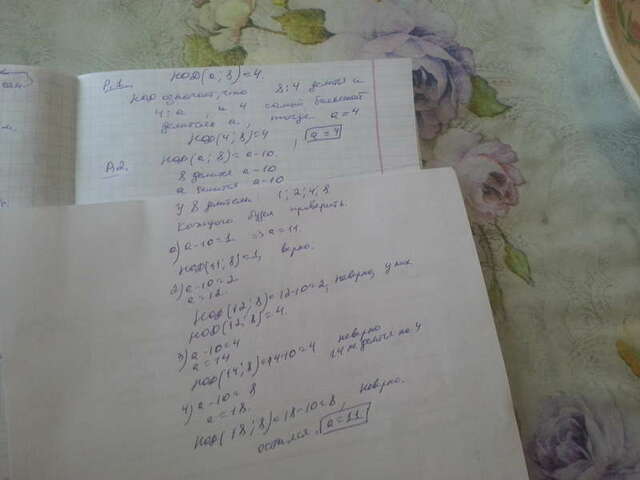 НОД(а; 8) = 4.
НОД означает, что 8; 4 делится и
4; а, и 4 самый большой
делитель а, тогда а = 4
НОД(4; 8) = 4, а = 4
А2. НОД(а; 8) = а-10.
8 делится а-10
а делится а-10
У 8 делители 1; 2; 4; 8
Каждого будем проверить.
а-10 = 1 => а = 11
НОД(11; 8) = 1, верно.
2) а-10 = 2
а = 12.
НОД(12; 8) = 12-10 = 2, неверно, у них
НОД(12; 8) = 4.
3) а-10 = 4
а = 14
НОД(14; 8) = 14-10 = 4 неверно
14 не делится на 4
4) а-10 = 8
а = 18.
НОД(18; 8) = 18-10 = 8, неверно.
остался. а = 11